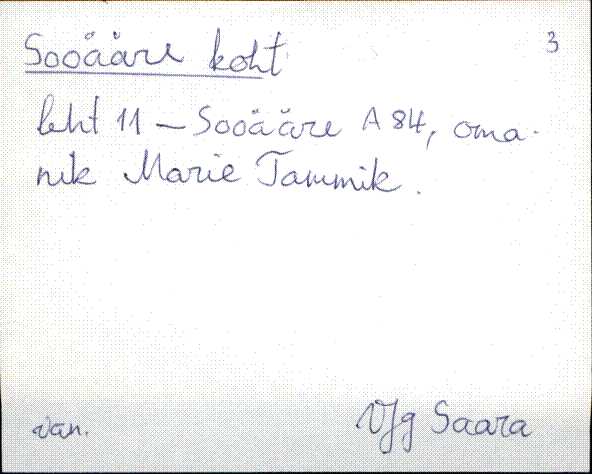 Sooääre koht 3
leht 11 – Sooääre A 84, oma-
nik Marie Tammik.
van. VJg Saara